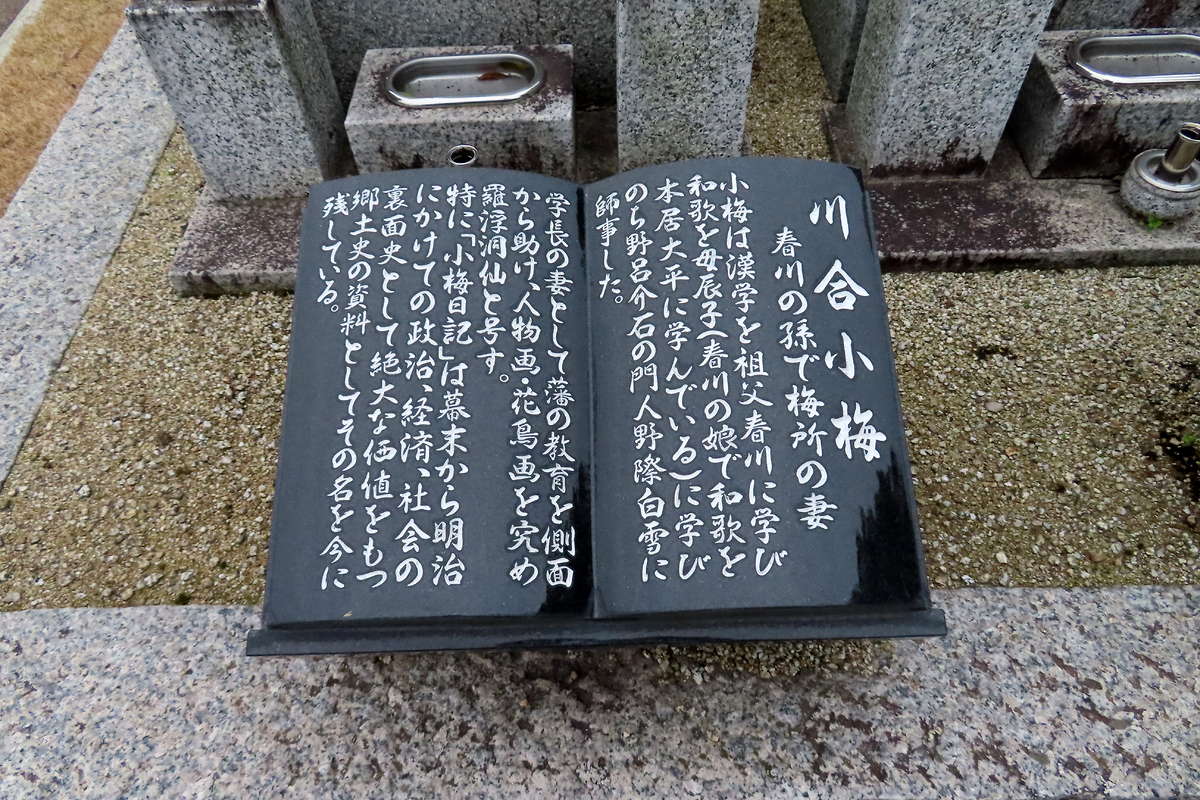 川合小梅
春川の孫で梅所の妻
小梅は漢学を祖父春川に学び
和歌を母辰子(春川の娘で和歌を
本居大平に学んでいる)に学び
のち野呂介石の門人野際白雪に
師事した。
学長の妻として藩の教育を側面
から助け、人物画・花鳥画を究め
羅浮洞仙と号す。
特に「小梅日記」は幕末から明治
にかけての政治、経済、社会の
裏面史として絶大な価値をもつ
郷土史の資料としてその名を今に
残している。